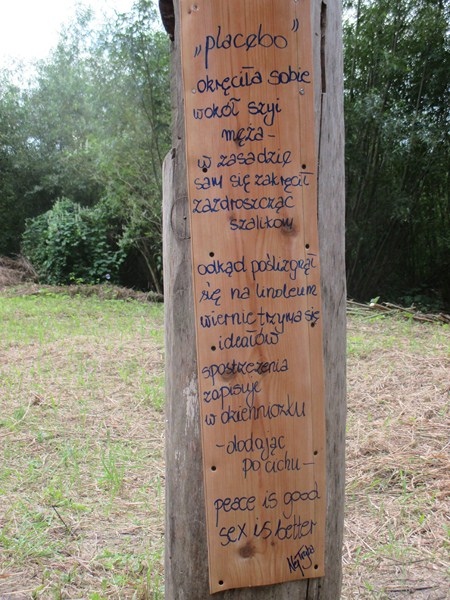 „placebo"
okręciła sobie
wokół szyi
męża -
w zasadzie
sam się zakręcił
zazdroszcząc
szalikowi
odkąd poślizgnął
się na linoleum
wiernie trzyma się
ideałów
spostrzeżenia
zapisuje
w dzienniczku
- dodając
po cichu -
peace is good
sex is better